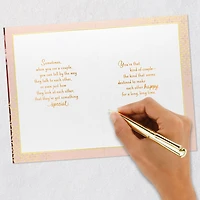 Sometimes,
when you see a couple,
you can tell by the way
they talk to each other,
or even just how
they look at each other,
that they've got something
special.
You're that
kind of couple—
the kind that seems
destined to make
each other happy
for a long, long time.